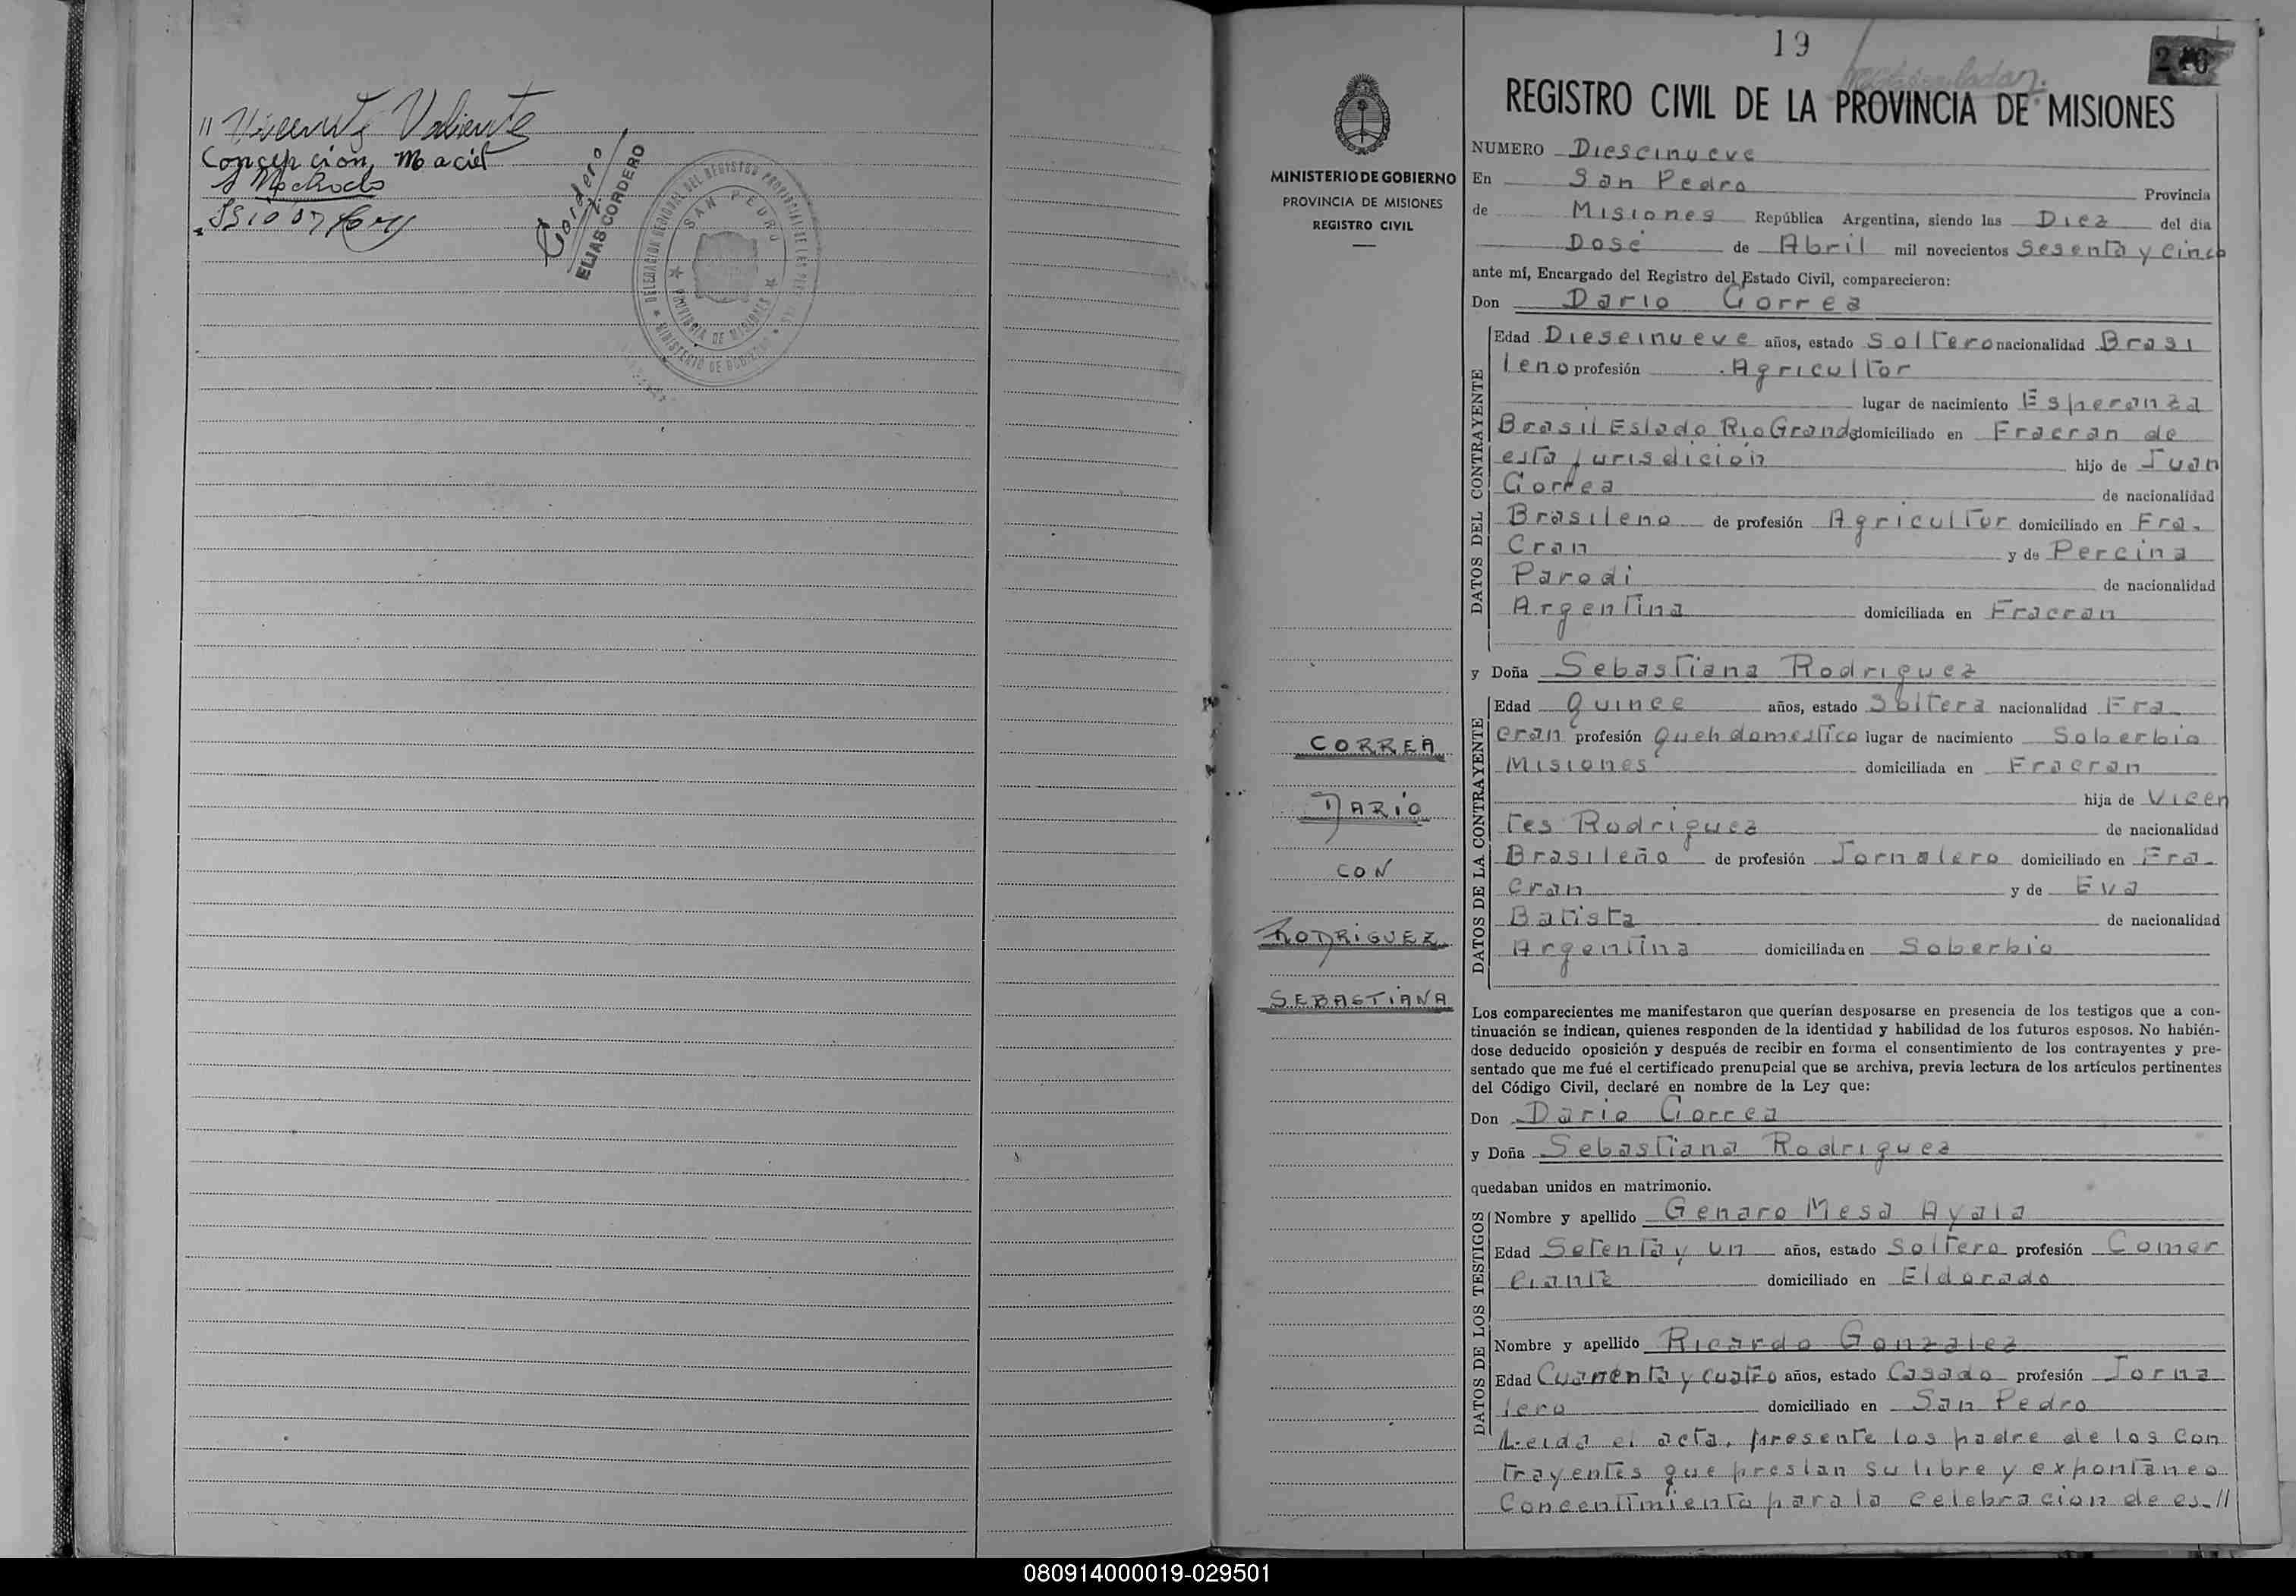 " Vicente Valiente
Concepción Maciel
Machado
Cordero
ELIAS CORDERO
DELEGACION REGIONAL DEL REGISTRO PROVINCIAL DE LAS PERS
SAN PEDRO
PROVINCIA DE MISIONES
MINISTERIO DE GOBIERNO
MINISTERIO DE GOBIERNO
PROVINCIA DE MISIONES
REGISTRO CIVIL
CORREA
DARIO
CON
RODRIGUEZ
SEBASTIANA
19
REGISTRO CIVIL DE LA PROVINCIA DE MISIONES
NUMERO Dieseinueve
En San Pedro Provincia
de Misiones República Argentina, siendo las Diez del día
Dose de Abril mil novecientos Sesenta y Cinco
ante mí, Encargado del Registro del Estado Civil, comparecieron:
Don Dario Correa
DATOS DEL CONTRAYENTE
Edad Dieseinueve años, estado Soltero nacionalidad Brasi
leno profesión Agricultor
lugar de nacimiento Esperanza
Brasil Estado Rio Grande domiciliado en Fracran de
esta jurisdición hijo de Juan
Correa de nacionalidad
Brasileno de profesión Agricultor domiciliado en Fra-
Cran y de Percina
Parodi de nacionalidad
Argentina domiciliada en Fracran
y Doña Sebastiana Rodriguez
DATOS DE LA CONTRAYENTE
Edad Quince años, estado Soltera nacionalidad Fra-
cran profesión Queh domestico lugar de nacimiento Soberbio
Misiones domiciliada en Fracran
hija de Vicen
tes Rodriguez de nacionalidad
Brasileño de profesión Jornalero domiciliado en Fra-
cran y de Eva
Batista de nacionalidad
Argentina domiciliada en Soberbio
Los comparecientes me manifestaron que querían desposarse en presencia de los testigos que a con-
tinuación se indican, quienes responden de la identidad y habilidad de los futuros esposos. No habién-
dose deducido oposición y después de recibir en forma el consentimiento de los contrayentes y pre-
sentado que me fué el certificado prenupcial que se archiva, previa lectura de los artículos pertinentes
del Código Civil, declaré en nombre de la Ley que:
Don Dario Correa
y Doña Sebastiana Rodriguez
quedaban unidos en matrimonio.
DATOS DE LOS TESTIGOS
Nombre y apellido Genaro Mesa Ayala
Edad Setenta y un años, estado Soltero profesión Comer
ciante domiciliado en Eldorado
Nombre y apellido Ricardo Gonzalez
Edad Cuarenta y cuatro años, estado Casado profesión Jorna
lero domiciliado en San Pedro
Leida el acta, presente los padre de los Con
trayentes que prestan su libre y expontaneo
Concentimiento para la celebracion de es-//
080914000019-029501